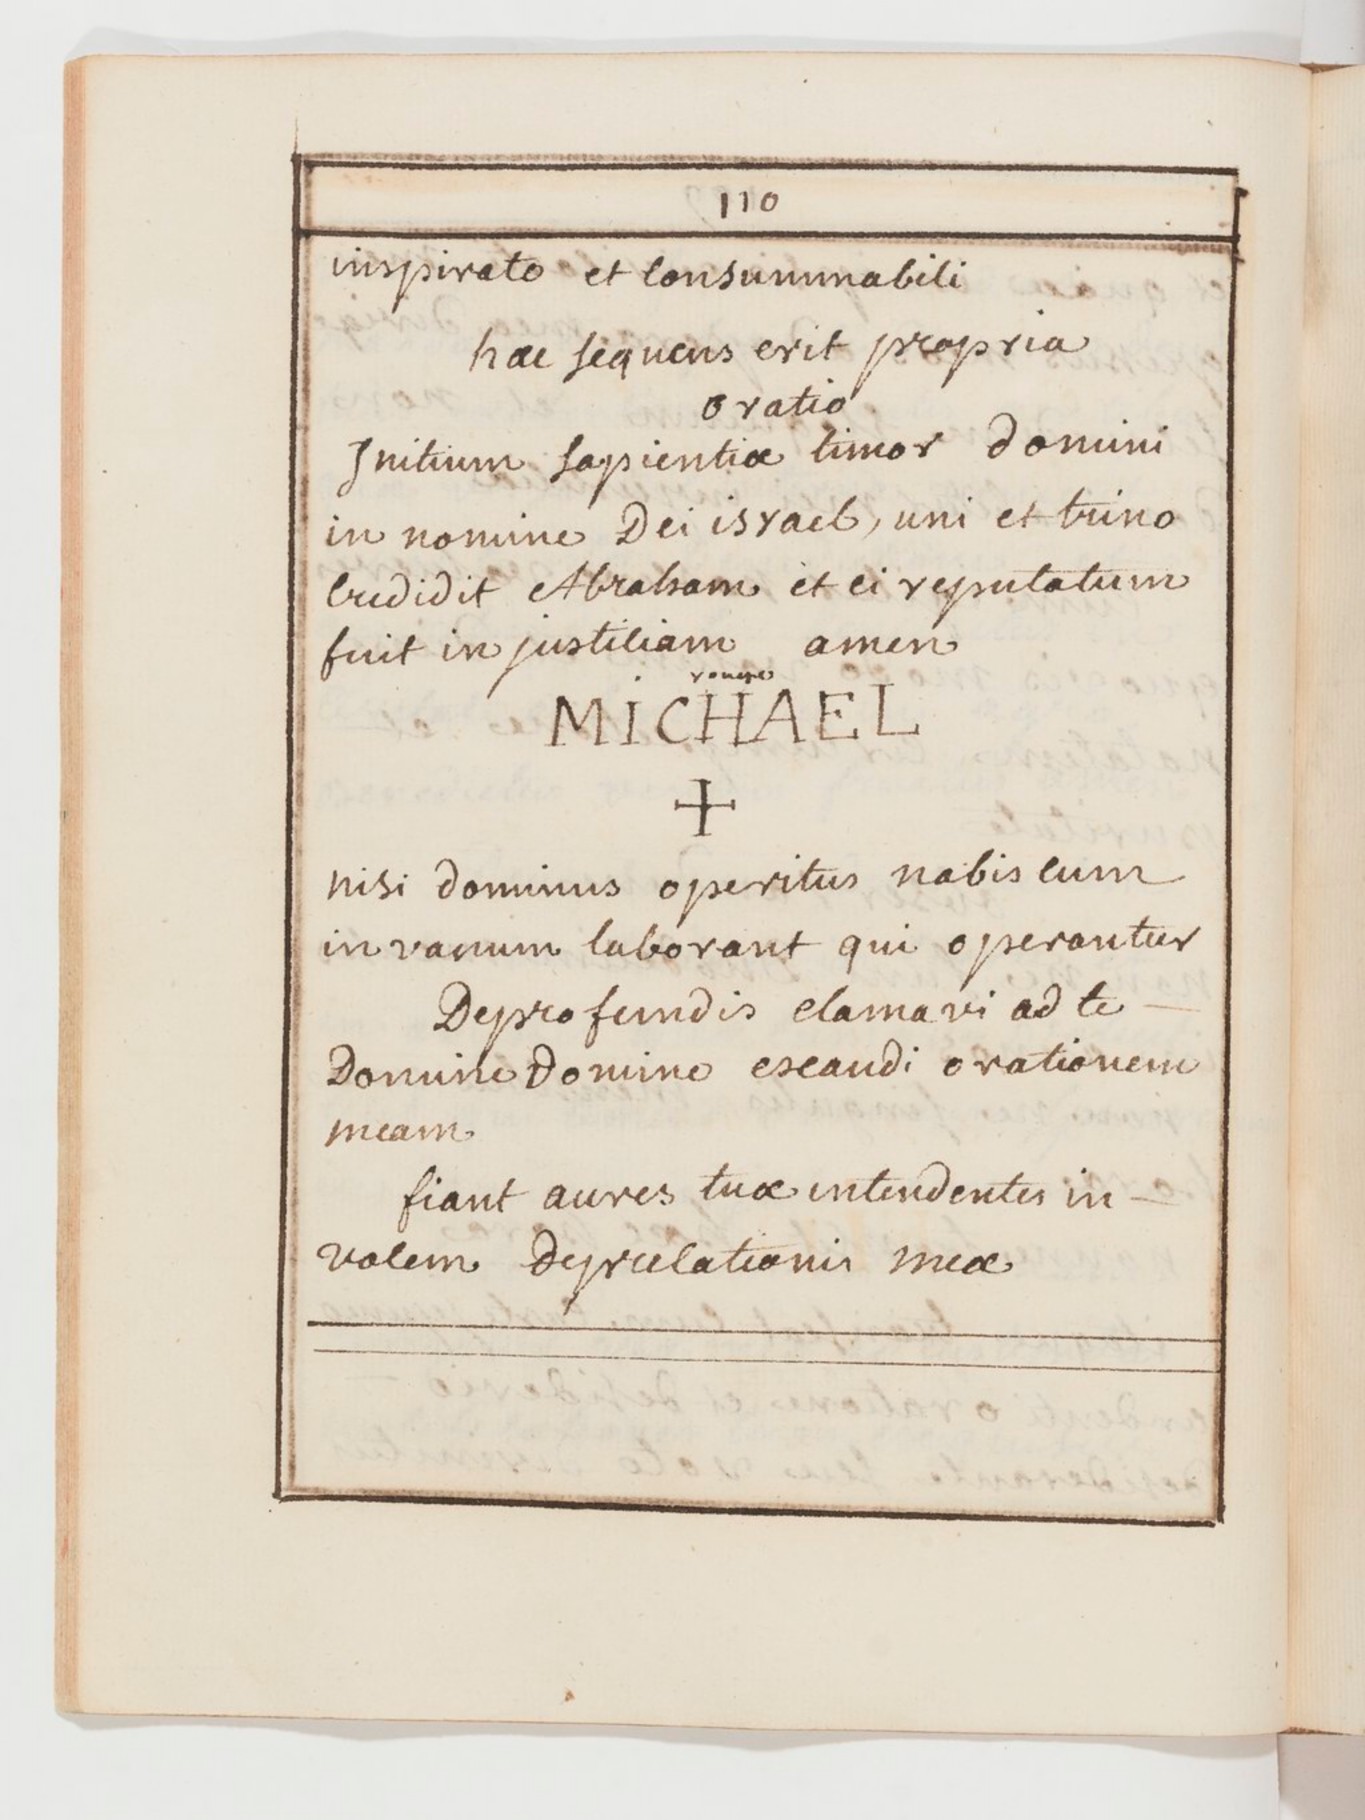 110
inspirato et consummabili
hæc sequens erit propria
oratio
Initium sapientiæ timor domini
in nomine Dei israel, uni et trino
credidit Abraham et ei reputatum
fuit in justitiam amen
rouge
MICHAEL
+
nisi dominus operitus nobiscum
in vanum laborant qui operantur
De profundis clamavi ad te —
Domine Domine exaudi orationem
meam
fiant aures tuæ intendentes in —
vocem deprecationis meæ